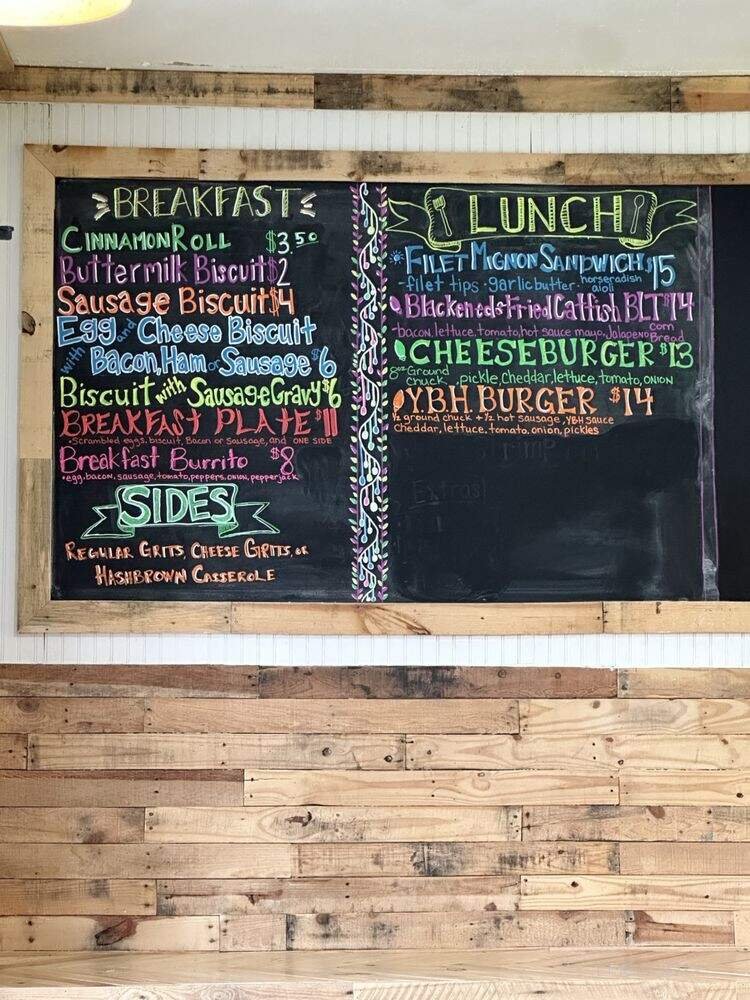 BREAKFAST
CINNAMON ROLL $3.50
Buttermilk Biscuit $2
Sausage Biscuit $4
Egg and Cheese Biscuit
with Bacon, Ham or Sausage $6
Biscuit with Sausage Gravy $6
BREAKFAST PLATE $11
•Scrambled eggs, biscuit, Bacon or Sausage, and ONE SIDE
Breakfast Burrito $8
•egg, bacon, sausage, tomato, peppers, onion, pepperjack
SIDES
REGULAR GRITS, CHEESE GRITS, OR
HASHBROWN CASSEROLE
LUNCH
FILET MIGNON SANDWICH $15
-filet tips -garlic butter- horseradish aioli
Blackened or Fried Catfish BLT $14
-bacon, lettuce, tomato, hot sauce mayo, Jalapeno corn Bread
CHEESEBURGER $13
8oz Ground chuck, pickle, cheddar, lettuce, tomato, ONION
Y.B.H. BURGER $14
1/2 ground chuck + 1/2 hot sausage, YBH sauce
Cheddar, lettuce, tomato, onion, pickles
Extras